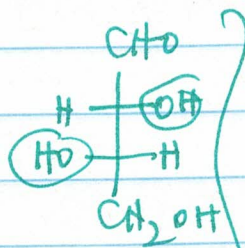 CHO
H OH
HO H
CH2OH